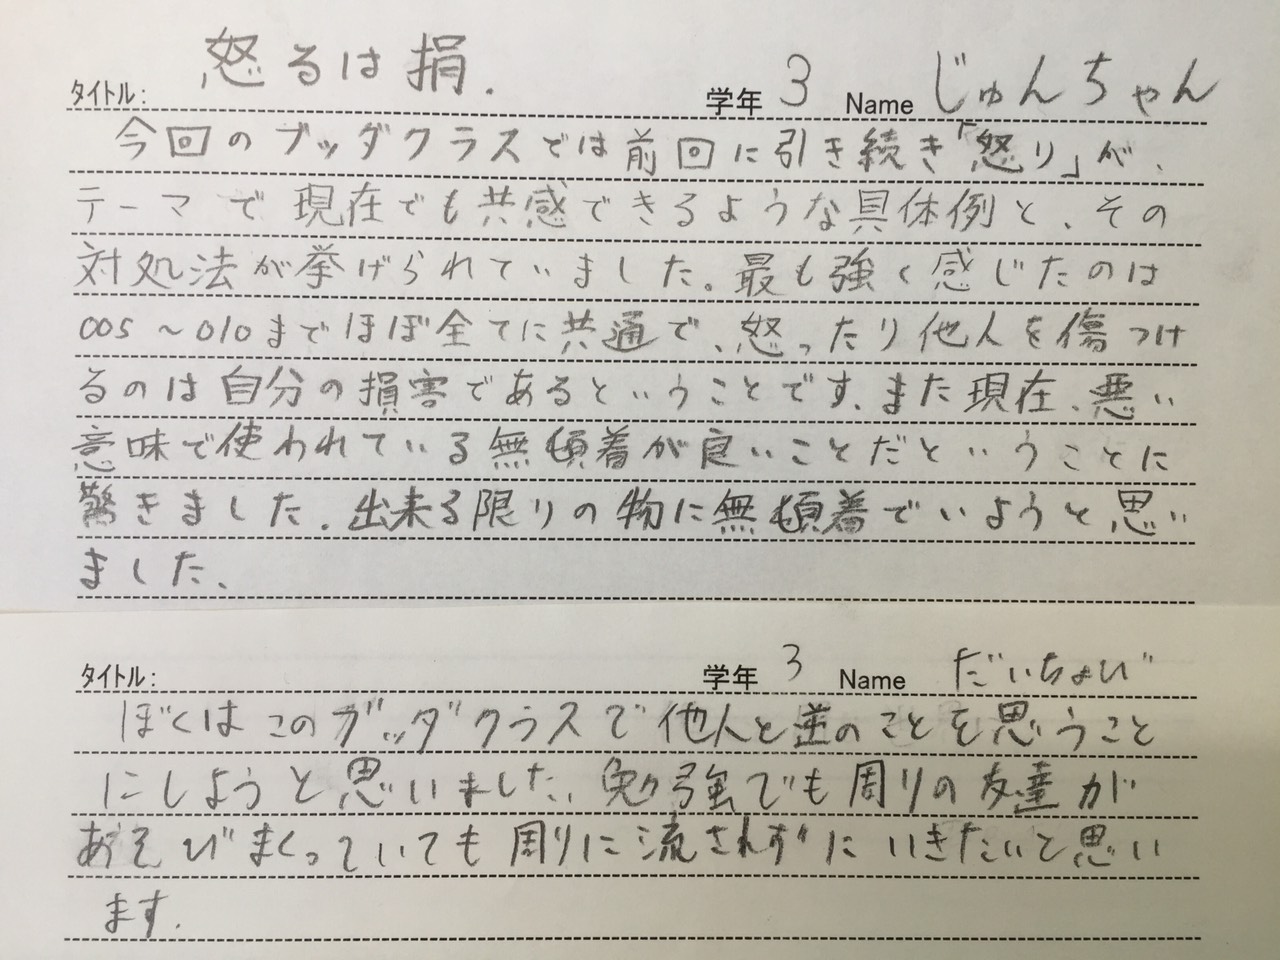 タイトル: 怒るは捐. 学年 3 Name じゅんちゃん
今回のブッダクラスでは前回に引き続き「怒り」が、
テーマで現在でも共感できるような具体例と、その
対処法が挙げられていました。最も強く感じたのは
005～010までほぼ全てに共通で、怒ったり他人を傷つけ
るのは自分の損害であるということです、また現在、悪い
意味で使われている無頓着が良いことだということに
驚きました、出来る限りの物に無頓着でいようと思い
ました、
タイトル: 学年 3 Name だいちょび
ぼくはこのブッダクラスで他人と逆のことを思うこと
にしようと思いました、勉強でも周りの友達が
あそびまくっていても周りに流されずにいきたいと思い
ます.